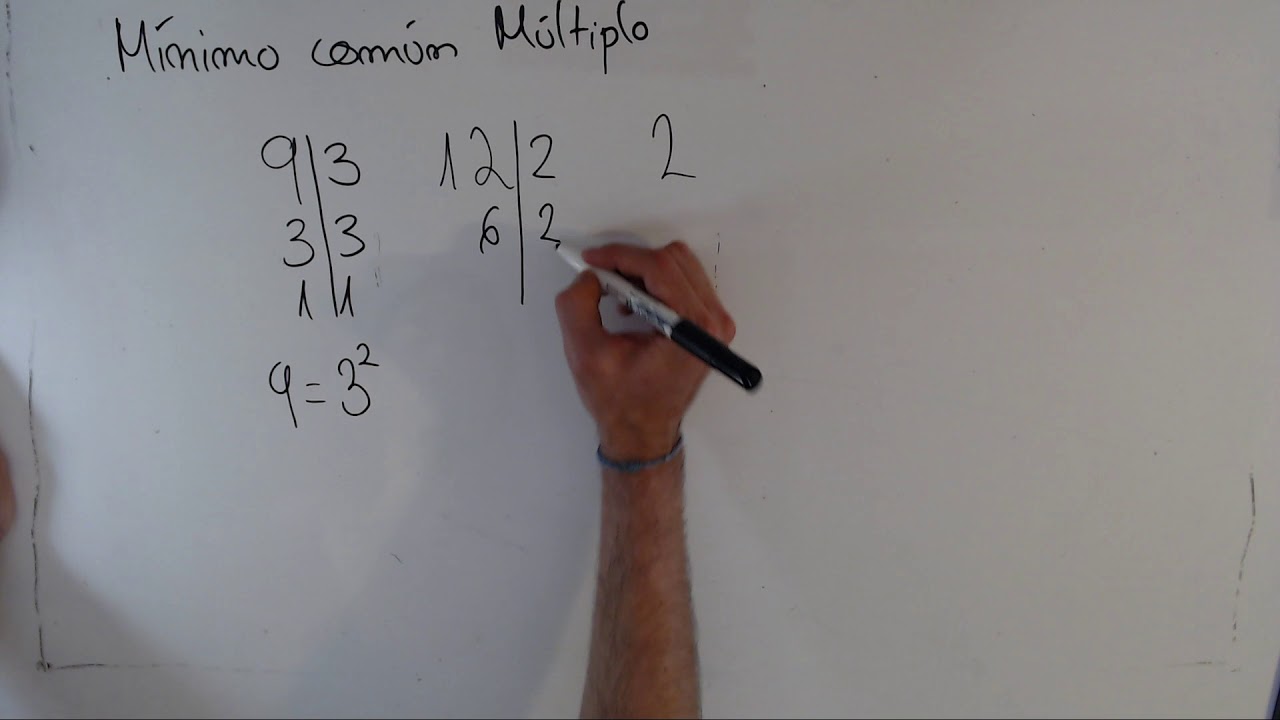 Mínimo común Múltiplo
9|3 12|2 2
3|3 6|2
1|1
9=3²